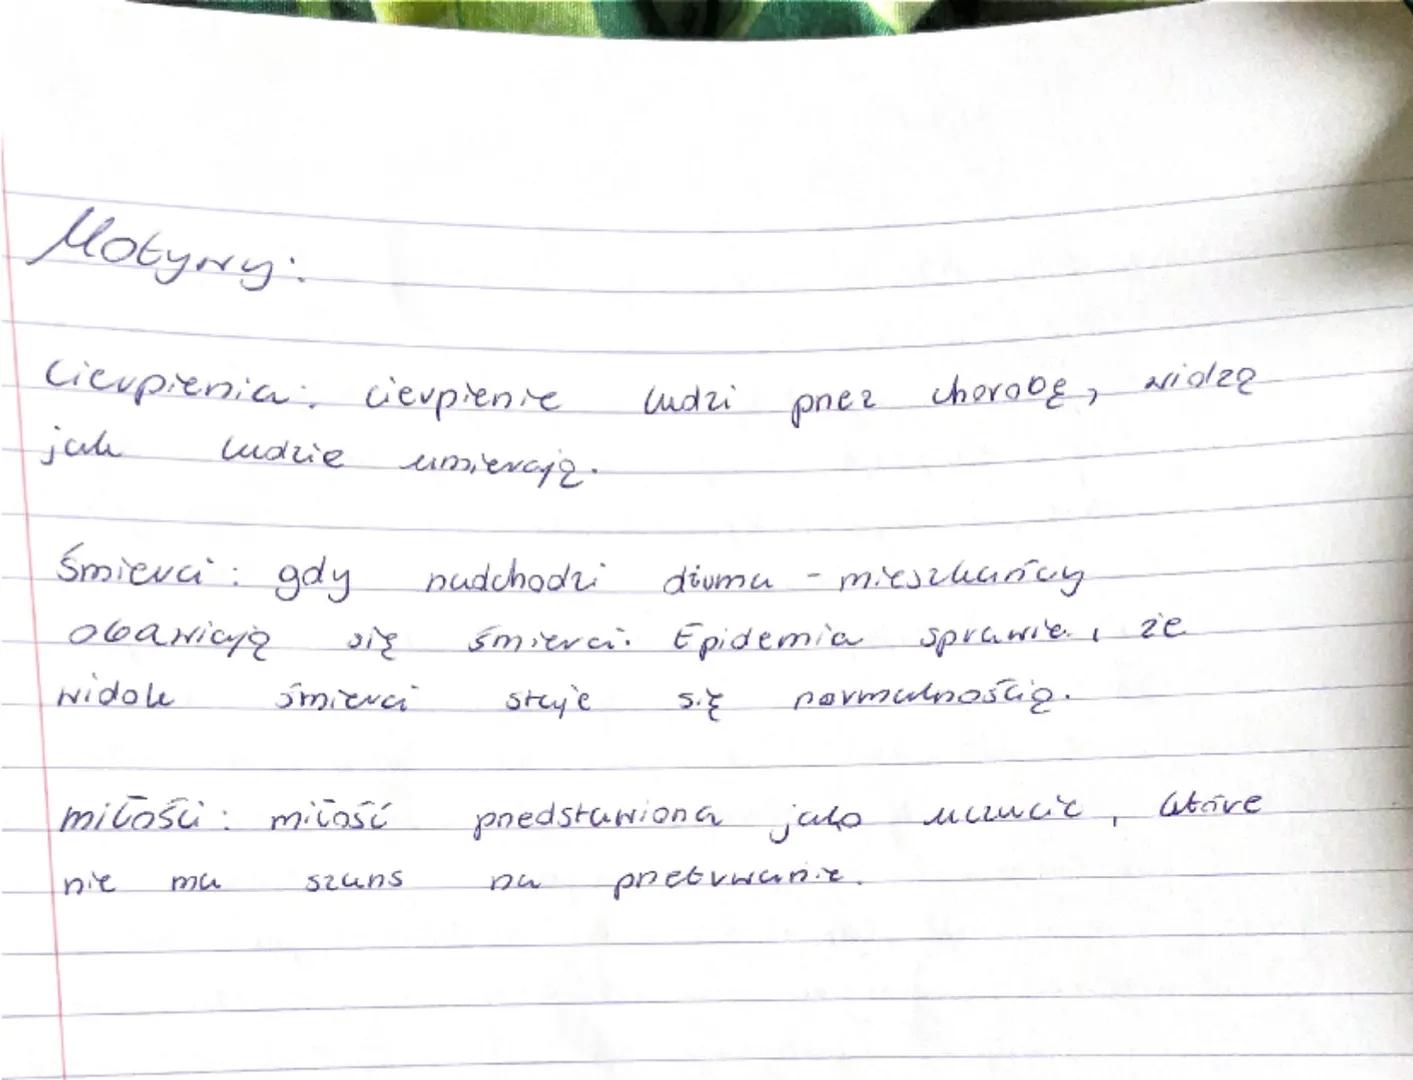 Motywy:
Cierpienia: cierpienie ludzi przez chorobę, widzą
jak ludzie umierają.
Śmierci: gdy nadchodzi dżuma - mieszkańcy
obawiają się śmierci. Epidemia sprawie, że
widok śmierci staje się normalnością.
miłości: miłość przedstawiona jako uczucie, które
nie ma szans na przetrwanie.